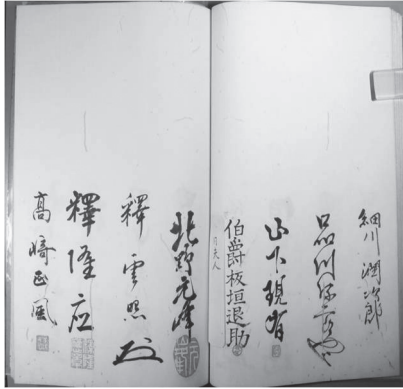 細川潤次郎
品川弥二郎
山下現有
伯爵板垣退助
仝夫人
北野元峰
釋雲照
釋隆応
高崎正風